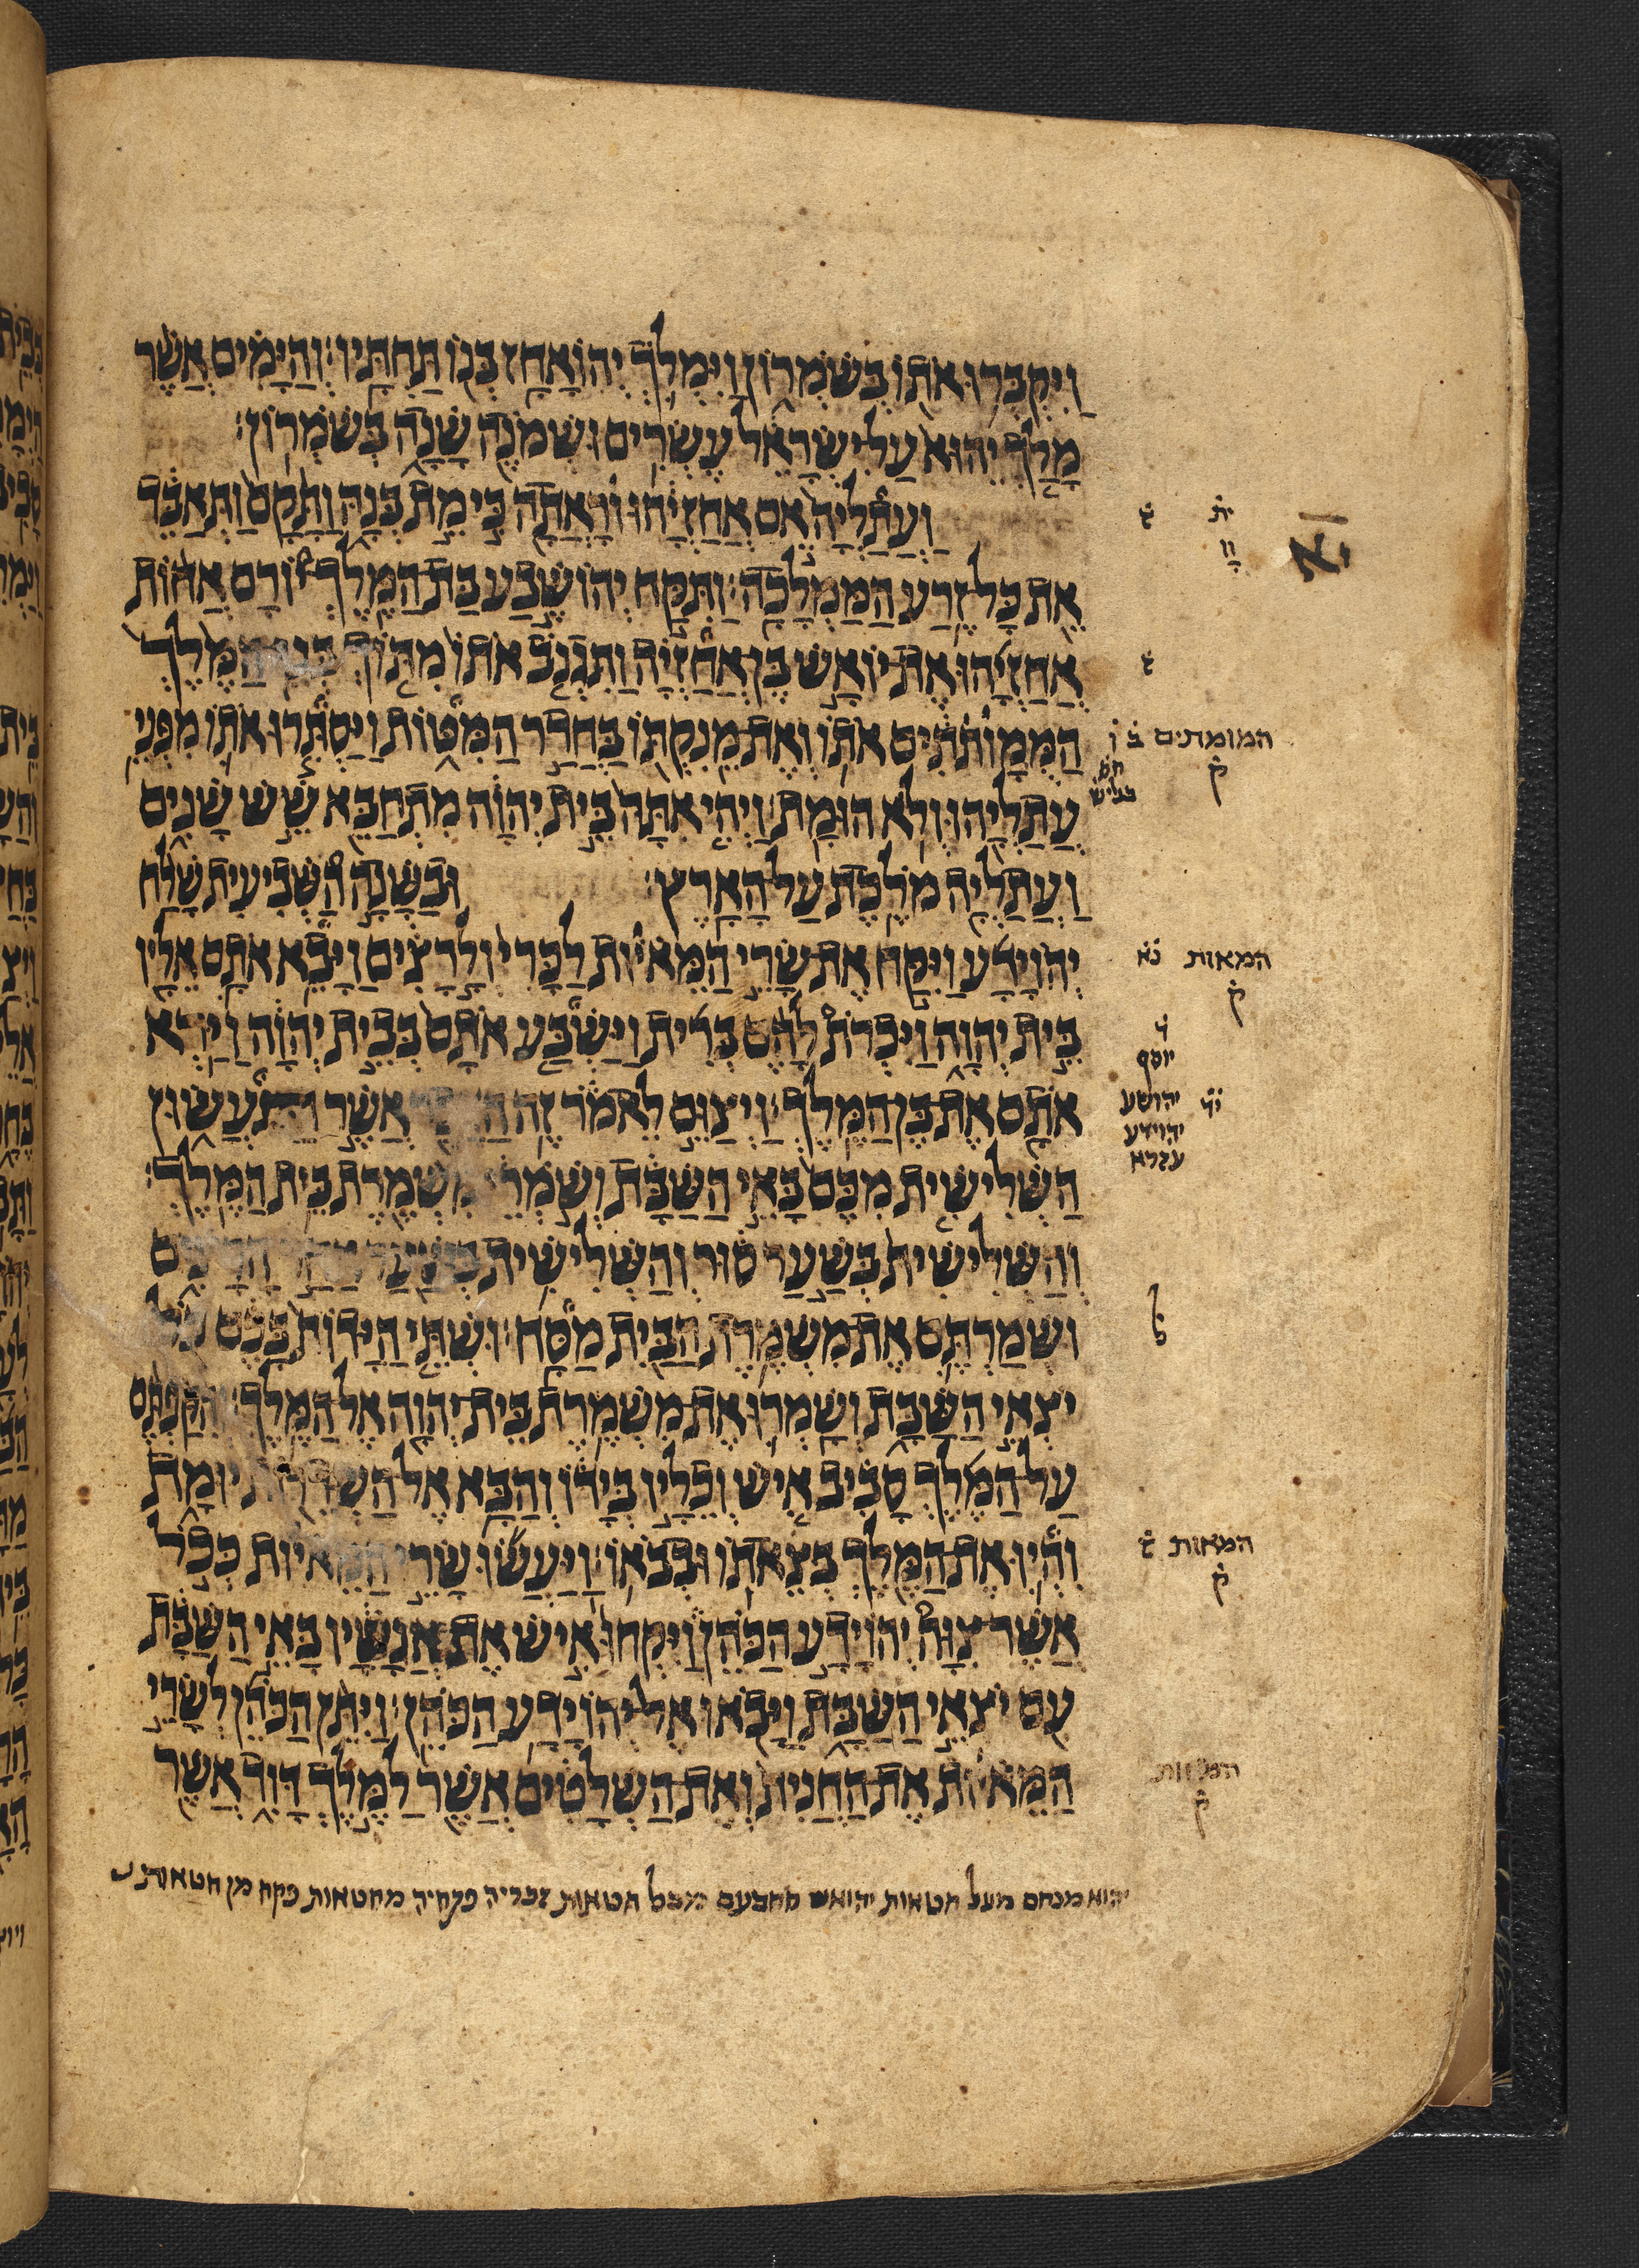 וַיִּקְבְּרוּ אֹתוֹ בְּשֹׁמְרוֹן וַיִּמְלֹךְ יְהוֹאָחָז בְּנוֹ תַּחְתָּיו׃ וְהַיָּמִים אֲשֶׁר
מָלַךְ יֵהוּא עַל יִשְׂרָאֵל עֶשְׂרִים וּשְׁמֹנֶה שָׁנָה בְּשֹׁמְרוֹן׃
וַעֲתַלְיָה אֵם אֲחַזְיָהוּ וּרָאֲתָה כִּי מֵת בְּנָהּ וַתָּקָם וַתְּאַבֵּד
יא
ית
אֵת כָּל זֶרַע הַמַּמְלָכָה׃ וַתִּקַּח יְהוֹשֶׁבַע בַּת הַמֶּלֶךְ יוֹרָם אֲחוֹת
אֲחַזְיָהוּ אֶת יוֹאָשׁ בֶּן אֲחַזְיָה וַתִּגְנֹב אֹתוֹ מִתּוֹךְ בְּנֵי הַמֶּלֶךְ
הַמְּמוֹתְתִים אֹתוֹ וְאֶת מֵנִקְתּוֹ בַּחֲדַר הַמִּטּוֹת וַיַּסְתִּרוּ אֹתוֹ מִפְּנֵי
המומתים ק
עֲתַלְיָהוּ וְלֹא הוּמָת׃ וַיְהִי אִתָּהּ בֵּית יְהוָה מִתְחַבֵּא שֵׁשׁ שָׁנִים
וַעֲתַלְיָה מֹלֶכֶת עַל הָאָרֶץ׃ וּבַשָּׁנָה הַשְּׁבִיעִית שָׁלַח
יְהוֹיָדָע וַיִּקַּח אֶת שָׂרֵי הַמֵּאיוֹת לַכָּרִי וְלָרָצִים וַיָּבֵא אֹתָם אֵלָיו
המאות ק
בֵּית יְהוָה וַיִּכְרֹת לָהֶם בְּרִית וַיַּשְׁבַּע אֹתָם בְּבֵית יְהוָה וַיַּרְא
אֹתָם אֶת בֶּן הַמֶּלֶךְ׃ וַיְצַוֵּם לֵאמֹר זֶה אֲשֶׁר תַּעֲשׂוּן
יוסף
יהושע
יהוידע
עזרא
הַשְּׁלִשִׁית מִכֶּם בָּאֵי הַשַּׁבָּת וְשֹׁמְרֵי מִשְׁמֶרֶת בֵּית הַמֶּלֶךְ׃
וְהַשְּׁלִישִׁית בְּשַׁעַר סוּר וְהַשְּׁלִישִׁית
וּשְׁמַרְתֶּם אֶת מִשְׁמֶרֶת הַבַּיִת מַסָּח׃ וּשְׁתֵּי הַיָּדוֹת בָּכֶם כֹּל
יֹצְאֵי הַשַּׁבָּת וְשָׁמְרוּ אֶת מִשְׁמֶרֶת בֵּית יְהוָה אֶל הַמֶּלֶךְ׃ וְהִקַּפְתֶּם
עַל הַמֶּלֶךְ סָבִיב אִישׁ וְכֵלָיו בְּיָדוֹ וְהַבָּא אֶל יוּמָת
וִהְיוּ אֶת הַמֶּלֶךְ בְּצֵאתוֹ וּבְבֹאוֹ׃ וַיַּעֲשׂוּ שָׂרֵי הַמֵּאיוֹת כְּכֹל
המאות ק
אֲשֶׁר צִוָּה יְהוֹיָדָע הַכֹּהֵן וַיִּקְחוּ אִישׁ אֶת אֲנָשָׁיו בָּאֵי הַשַּׁבָּת
עִם יֹצְאֵי הַשַּׁבָּת וַיָּבֹאוּ אֶל יְהוֹיָדָע הַכֹּהֵן׃ וַיִּתֵּן הַכֹּהֵן לְשָׂרֵי
הַמֵּאיוֹת אֶת הַחֲנִית וְאֶת הַשְּׁלָטִים אֲשֶׁר לַמֶּלֶךְ דָּוִד אֲשֶׁר
המאות ק
יהוא מנחם מעל חטאות יהואש מכל חטאות זכריה פקחיה מחטאות פקח מן חטאות